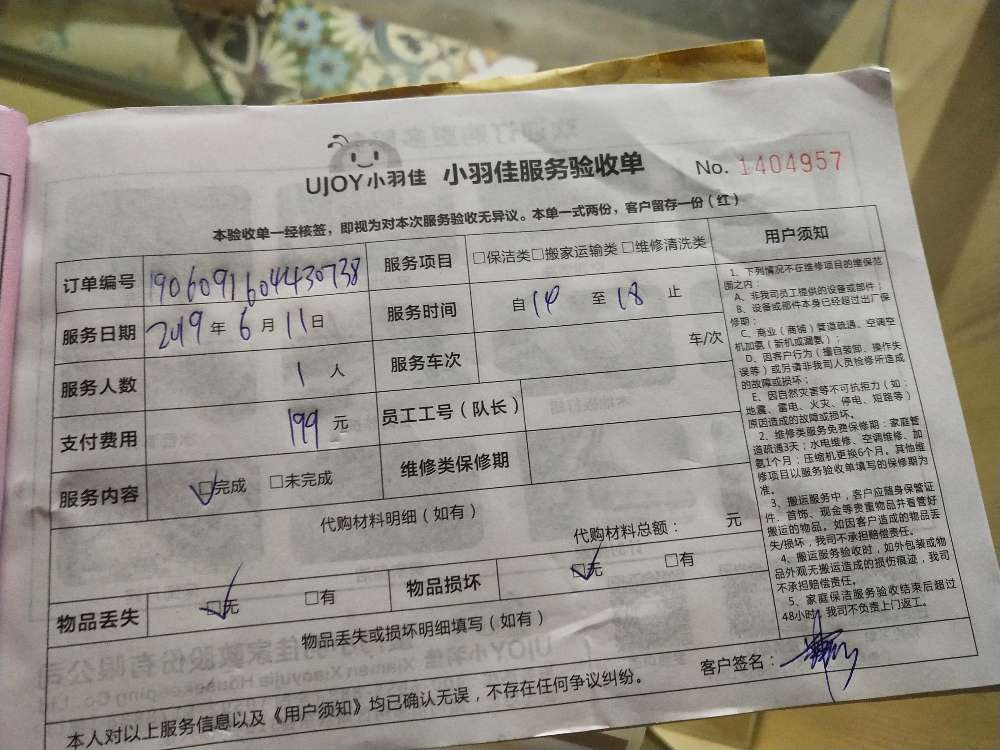 UJOY小羽佳 小羽佳服务验收单 No. 1404957
本验收单一经核签，即视为对本次服务验收无异议。本单一式两份，客户留存一份（红）
订单编号 19060916044430738 服务项目 □保洁类□搬家运输类□维修清洗类
服务日期 2019年6月11日 服务时间 自14至18止
服务人数 1人 服务车次 车/次
支付费用 199元 员工工号（队长）
服务内容 □完成 □未完成 维修类保修期
代购材料明细（如有）
代购材料总额： 元
物品丢失 □无 □有 物品损坏 □无 □有
物品丢失或损坏明细填写（如有）
本人对以上服务信息以及《用户须知》均已确认无误，不存在任何争议纠纷。
客户签名：
用户须知
1、下列情况不在维修项目的维保范
围之内：
A、非我司员工提供的设备或部件；
B、设备或部件本身已经超过出厂保
修期；
C、商业（商铺）管道疏通、空调空
机加氨（新机或漏氨）；
D、因客户行为（擅自装卸、操作失
误等）或另请非我司人员检修所造成
的故障或损坏；
E、因自然灾害等不可抗拒力（如：
地震、雷电、火灾、停电、短路等）
原因造成的故障或损坏。
2、维修类服务免费保修期：家庭管
道疏通3天；水电维修、空调维修、加
氨1个月；压缩机更换6个月。其他维
修项目以服务验收单填写的保修期为
准。
3、搬运服务中，客户应随身保管证
件、首饰、现金等贵重物品并看管好
搬运的物品。如因客户造成的物品丢
失/损坏，我司不承担赔偿责任。
4、搬运服务验收时，如外包装或物
品外观无搬运造成的损伤痕迹，我司
不承担赔偿责任。
5、家庭保洁服务验收结束后超过
48小时，我司不负责上门返工。